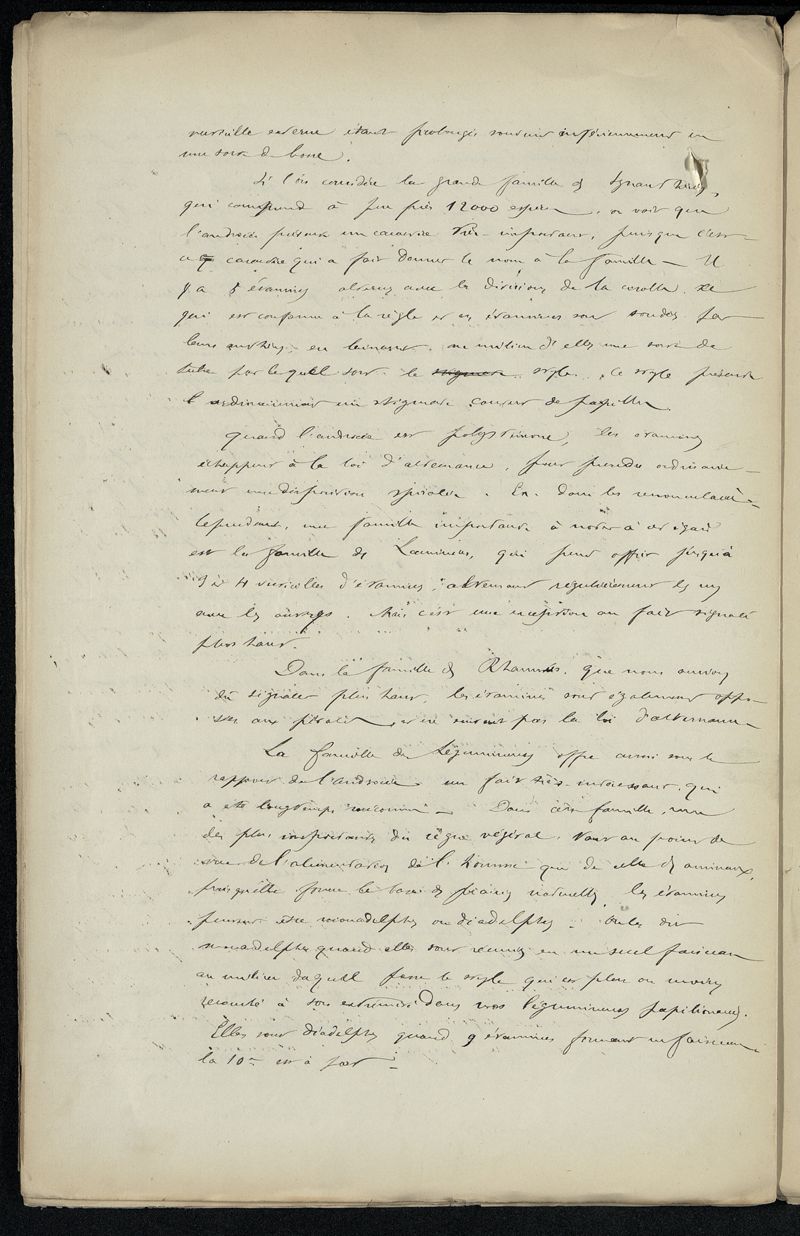 verticille externe étant prolongé souvent inférieurement en
une sorte de bosse.
Si l'on considère la grande famille des Synanthérées,
qui comprend à peu près 12000 espèces, on voit que
l'androcée présente un caractère très important, puisque c'est
ce caractère qui a fait donner le nom à la famille — Il
y a 5 étamines alternes avec les divisions de la corolle. Ce
qui est conforme à la règle et ces étamines sont soudées par
leurs anthères en laissant au milieu d'elles une sorte de
tube par lequel sort le stigmate style. Ce style présente
ordinairement un stigmate couvert de papilles
Quand l'androcée est polystémone, les étamines
échappent à la loi d'alternance, pour prendre ordinaire-
ment une disposition spiralée. Ex. dans les renonculacées
Cependant, une famille importante à noter à cet égard
est la famille des Laurinées, qui peut offrir jusqu'à
3 à 4 verticilles d'étamines, alternant régulièrement les uns
avec les autres. Mais c'est une exception au fait signalé
plus haut.
Dans la famille des Rhamnées, que nous aurions
dû signaler plus haut, les étamines sont également oppo-
sées aux pétales, et ne suivent pas la loi d'alternance
La famille des Légumineuses offre aussi sous le
rapport de l'androcée un fait très-intéressant, qui
a été longtemps méconnu — Dans cette famille, une
des plus importantes du règne végétal, tant au point de
vue de l'alimentation de l'homme que de celle des animaux,
puisqu'elle forme la base des prairies naturelles, les étamines
peuvent être monadelphes ou diadelphes. On les dit
monadelphes quand elles sont réunies en un seul faisceau
au milieu duquel passe le style qui est plus ou moins
recourbé à son extrémité dans nos légumineuses papilionacées.
Elles sont diadelphes quand 9 étamines forment un faisceau,
la 10e est à part —